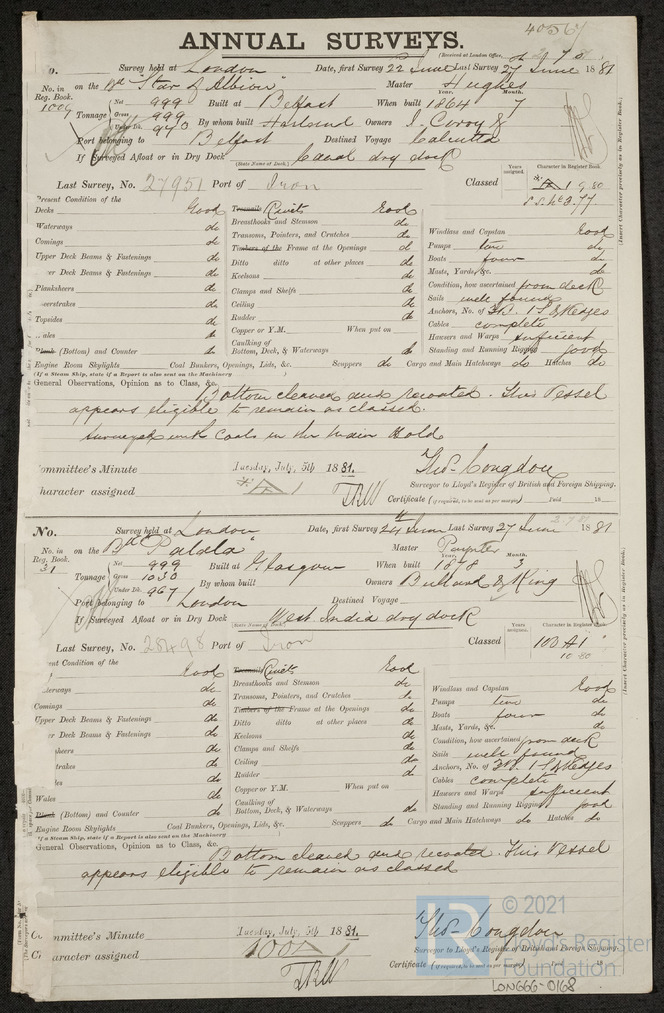 40567
ANNUAL SURVEYS.
(Received at London Office,
Survey held at London Date, first Survey 22 June Last Survey 27 June 1881
No. in Reg. Book. on the Bq "Star of Albion" Master Hughes
1009 Tonnage Net 999 Gross 999 Under Dk. 970 Built at Belfast When built Year. 1864 Month. 7
By whom built Harland Owners J. Corry &
Port belonging to Belfast Destined Voyage Calcutta
If Surveyed Afloat or in Dry Dock Canal dry dock
(State Name of Dock.)
Years assigned. Character in Register Book
Last Survey, No. 27951 Port of Iron Classed A 1 9,80
(Insert Character precisely as in Register Book.)
Present Condition of the
Decks Good Treenails Rivets Good
Waterways do Breasthooks and Stemson do Windlass and Capstan Good
Comings do Transoms, Pointers, and Crutches do Pumps two do
Upper Deck Beams & Fastenings do Timbers of the Frame at the Openings do Boats four do
er Deck Beams & Fastenings do Ditto ditto at other places do Masts, Yards, &c. do
Planksheers do Keelsons do Condition, how ascertained from deck
eerstrakes do Clamps and Shelfs do Sails well found
Topsides do Ceiling do Anchors, No. of 3B. 1S & Kedges
ales do Rudder do Cables complete
Plank (Bottom) and Counter do Copper or Y.M. When put on Hawsers and Warps sufficient
Caulking of Bottom, Deck, & Waterways do Standing and Running Rigging good
Engine Room Skylights Coal Bunkers, Openings, Lids, &c. Scuppers do Cargo and Main Hatchways do Hatches do
(If a Steam Ship, state if a Report is also sent on the Machinery )
General Observations, Opinion as to Class, &c. Bottom cleaned and recoated. This Vessel
appears eligible to remain as classed.
Surveyed with Coals in the Main Hold
ommittee's Minute Tuesday, July, 5th 1881.
haracter assigned A 1
TBW
Thos. Congdon
Surveyor to Lloyd's Register of British and Foreign Shipping.
Certificate (if required, to be sent as per margin) Paid 18
No. Survey held at London Date, first Survey 24th June Last Survey 27 June 1881
No. in Reg. Book. on the Bq "Palala" Master Paynter
31 Tonnage Net 999 Gross 1030 Under Dk. 967 Built at Glasgow When built Year. 1878 Month. 3
By whom built Owners Bullard & King
Port belonging to London Destined Voyage
If Surveyed Afloat or in Dry Dock West India dry dock
(State Name of Dock.)
Years assigned. Character in Register Book.
Last Survey, No. 28498 Port of Iron Classed 100 A1
10-80
(Insert Character precisely as in Register Book.)
ent Condition of the
Good Treenails Rivets Good
aterways do Breasthooks and Stemson do Windlass and Capstan Good
Comings do Transoms, Pointers, and Crutches do Pumps two do
Upper Deck Beams & Fastenings do Timbers of the Frame at the Openings do Boats four do
er Deck Beams & Fastenings do Ditto ditto at other places do Masts, Yards, &c. do
sheers do Keelsons do Condition, how ascertained from deck
trakes do Clamps and Shelfs do Sails well found
des do Ceiling do Anchors, No. of 3B. 1S & Kedges
Wales do Rudder do Cables complete
Plank (Bottom) and Counter do Copper or Y.M. When put on Hawsers and Warps sufficient
Caulking of Bottom, Deck, & Waterways do Standing and Running Rigging good
Engine Room Skylights Coal Bunkers, Openings, Lids, &c. Scuppers do Cargo and Main Hatchways do Hatches do
*If a Steam Ship, state if a Report is also sent on the Machinery
General Observations, Opinion as to Class, &c.
Bottom cleaned and recoated. This Vessel
appears eligible to remain as classed
mmittee's Minute Tuesday, July, 5th 1881.
aracter assigned 100A1
TBW
Thos. Congdon
Surveyor to Lloyd's Register of British and Foreign Shipping.
Certificate (if required, to be sent as per margin) 18
LR © 2021
Lloyd's Register
Foundation
LON666-0168